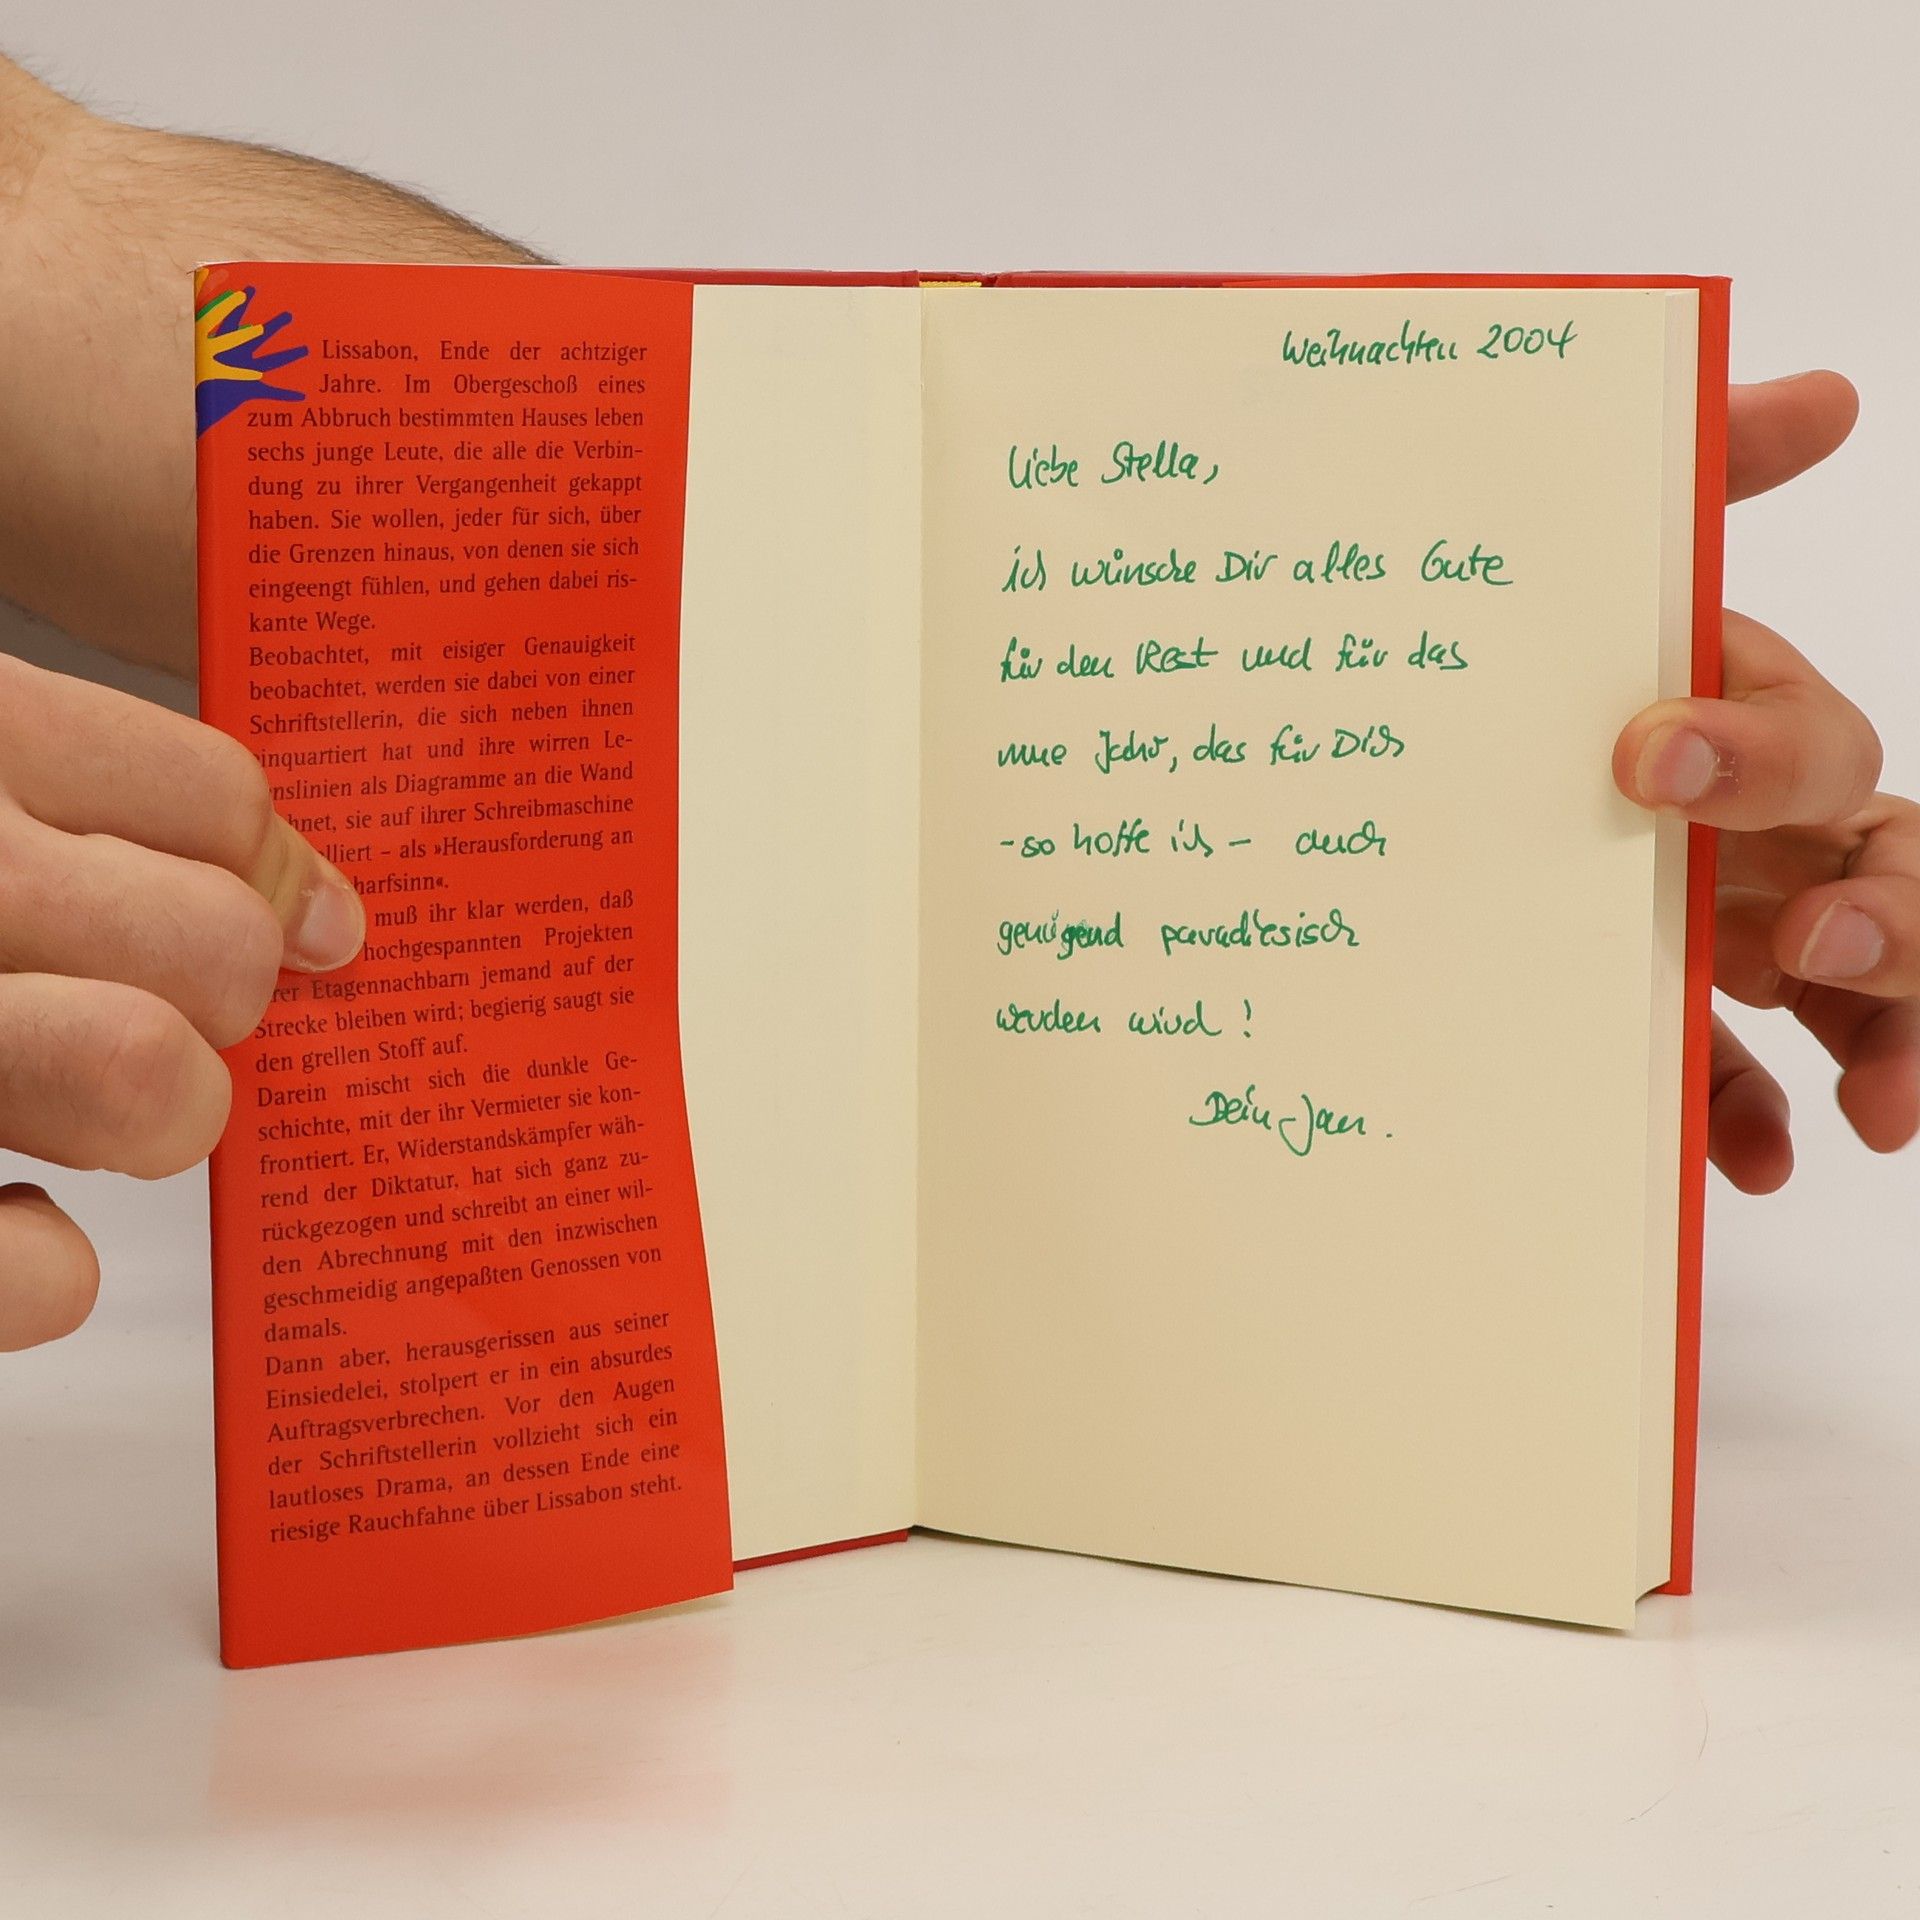 Lissabon, Ende der achtziger
Jahre. Im Obergeschoß eines
zum Abbruch bestimmten Hauses leben
sechs junge Leute, die alle die Verbin-
dung zu ihrer Vergangenheit gekappt
haben. Sie wollen, jeder für sich, über
die Grenzen hinaus, von denen sie sich
eingeengt fühlen, und gehen dabei ris-
kante Wege.
Beobachtet, mit eisiger Genauigkeit
beobachtet, werden sie dabei von einer
Schriftstellerin, die sich neben ihnen
inquartiert hat und ihre wirren Le-
nslinien als Diagramme an die Wand
hnet, sie auf ihrer Schreibmaschine
lliert – als »Herausforderung an
harfsinn«.
muß ihr klar werden, daß
hochgespannten Projekten
rer Etagennachbarn jemand auf der
Strecke bleiben wird; begierig saugt sie
den grellen Stoff auf.
Darein mischt sich die dunkle Ge-
schichte, mit der ihr Vermieter sie kon-
frontiert. Er, Widerstandskämpfer wäh-
rend der Diktatur, hat sich ganz zu-
rückgezogen und schreibt an einer wil-
den Abrechnung mit den inzwischen
geschmeidig angepaßten Genossen von
damals.
Dann aber, herausgerissen aus seiner
Einsiedelei, stolpert er in ein absurdes
Auftragsverbrechen. Vor den Augen
der Schriftstellerin vollzieht sich ein
lautloses Drama, an dessen Ende eine
riesige Rauchfahne über Lissabon steht.
Weihnachten 2004
Liebe Stella,
ich wünsche Dir alles Gute
für den Rest und für das
neue Jahr, das für Dich
- so hoffe ich - auch
genügend paradiesisch
werden wird!
Dein Jan.